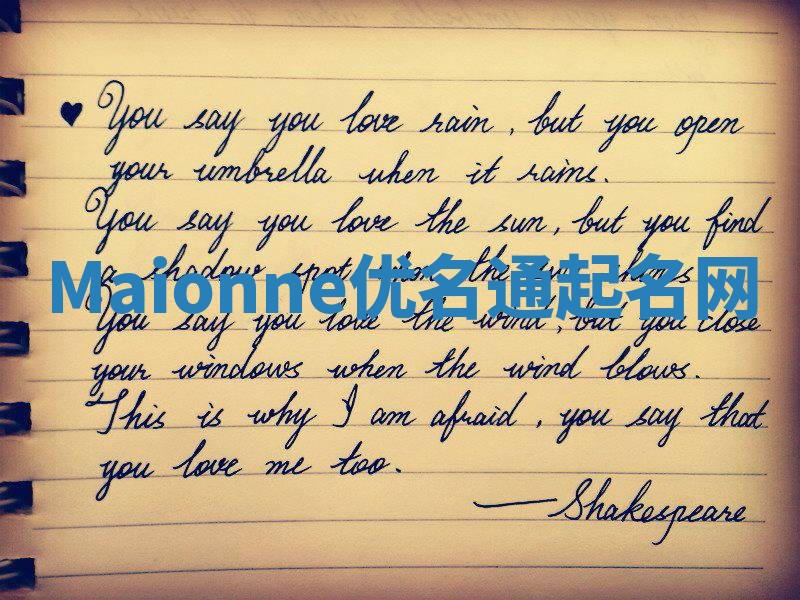 ♥ You say you love rain, but you open
your umbrella when it rains.
You say you love the sun, but you find
a shadow spot when the sun shines
Maionne优名通起名网
You say you love the wind, but you close
your windows when the wind blows.
This is why I am afraid, you say that
you love me too.
— Shakespeare